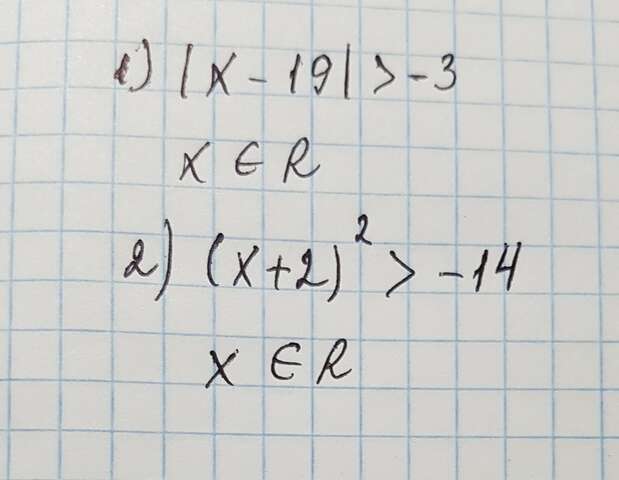 1) |x - 19| > -3
x ∈ R
2) (x+2)² > -14
x ∈ R